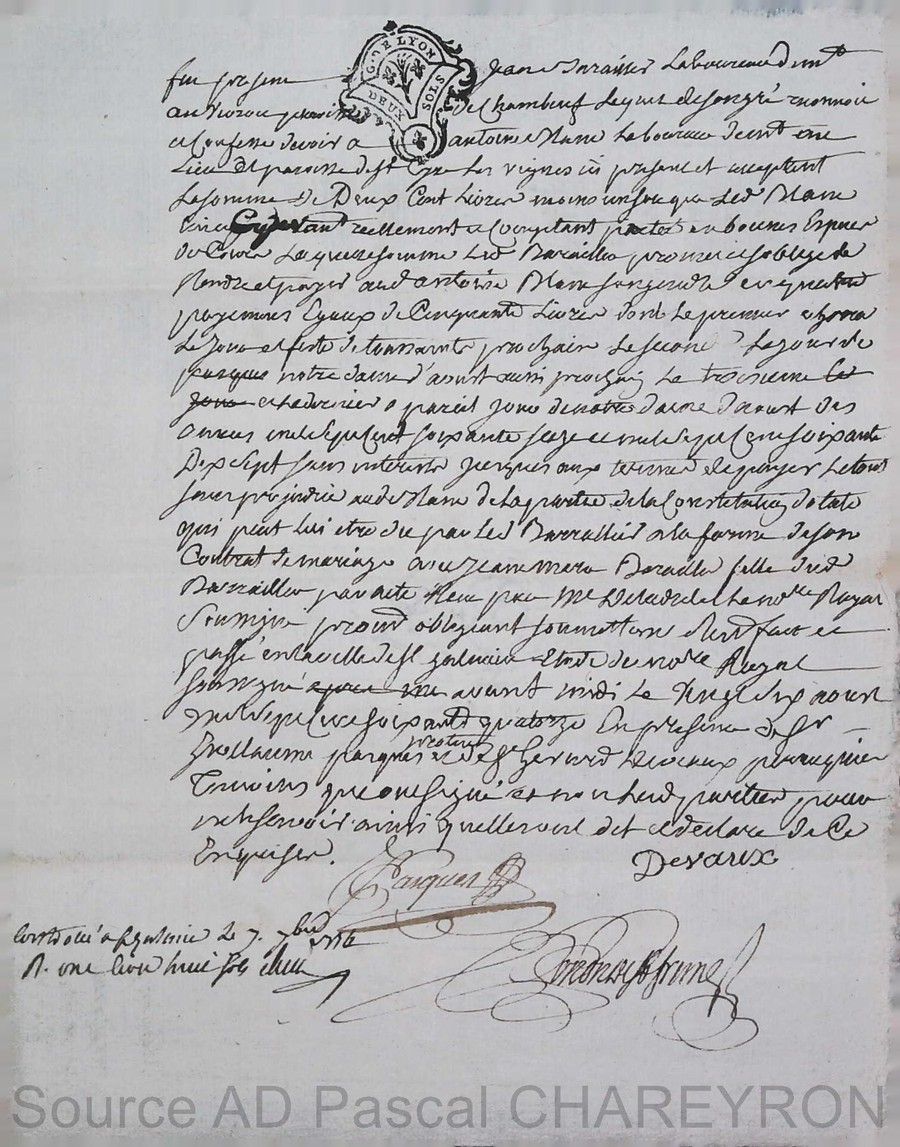 G. DE LYON
DEUX SOLS
fut présent Jean Barailler Laboureur d'emt
au de Chambeuf Lequel de son gré reconnoit
et Confesse devoir a antoine Blanc Laboureur
Lieu et paroisse de st Cyre Les vignes ici present et acceptant
La somme de Deux Cent Livres moins un sou que Led Blanc
reellement et Comptant en bonnes Especes
de Cours Laquelle somme Led Barailler promet et s'oblige de
Rendre et payer aud antoine Blanc en quatre
payemens Egaux de Cinquante Livres dont Le premier echerra
Le Jour et feste de toussaints prochain Le second Le jour de
notre dame d'aoust aussi prochain Le troisieme
et Le dernier a pareil Jour de notre dame d'aoust des
années mil sept Cent soixante seize et mil sept Cent soixante
Dix sept sans interets jusques aux termes de payer Le tout
sans prejudice aud Blanc de la partie de la Constitution dotale
qui peut lui etre due par Led Barraillier a la forme de son
Contrat de mariage avec Jeanne Marie Barailler fille dud
Barrailler par acte Recu par Me nore Royal
Soumis obligeant soumettant Rend fait et
passé en la ville de st galmier Etude du nore Royal
soussigné avant midi Le vingt six aoust
mil sept Cent soixante quatorze En presence de sr
Guillaume parques praticien et de sr Gerard Devaux perruquier
Temoins qui ont signé et non Lesd parties pour
ne sçavoir ainsi qu'elles ont dit et declaré de Ce
Enquises.
Parques
Devaux
Controllé a st galmier Le 7. 7bre 1774
R. une livre huit sols
Source AD Pascal CHAREYRON